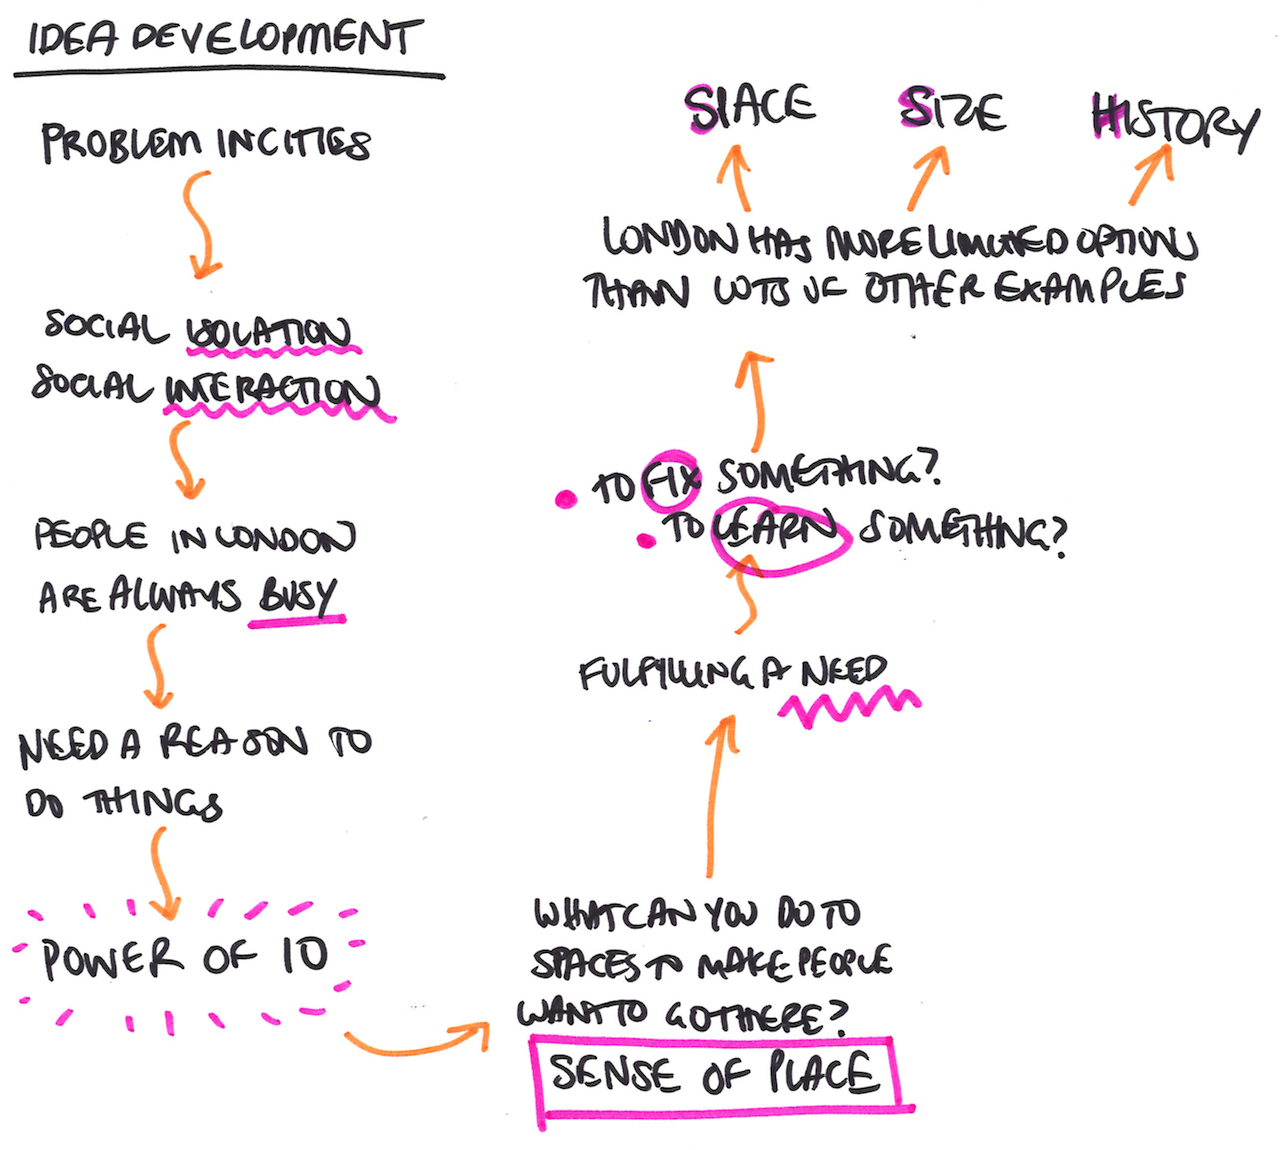 IDEA DEVELOPMENT
PROBLEM IN CITIES
SOCIAL ISOLATION
SOCIAL INTERACTION
PEOPLE IN LONDON
ARE ALWAYS BUSY
NEED A REASON TO
DO THINGS
POWER OF 10
WHAT CAN YOU DO TO
SPACES TO MAKE PEOPLE
WANT TO GO THERE?
SENSE OF PLACE
FULFILLING A NEED
• TO FIX SOMETHING?
• TO LEARN SOMETHING?
LONDON HAS MORE LIMITED OPTION
THAN LOTS OF OTHER EXAMPLES
SPACE SIZE HISTORY